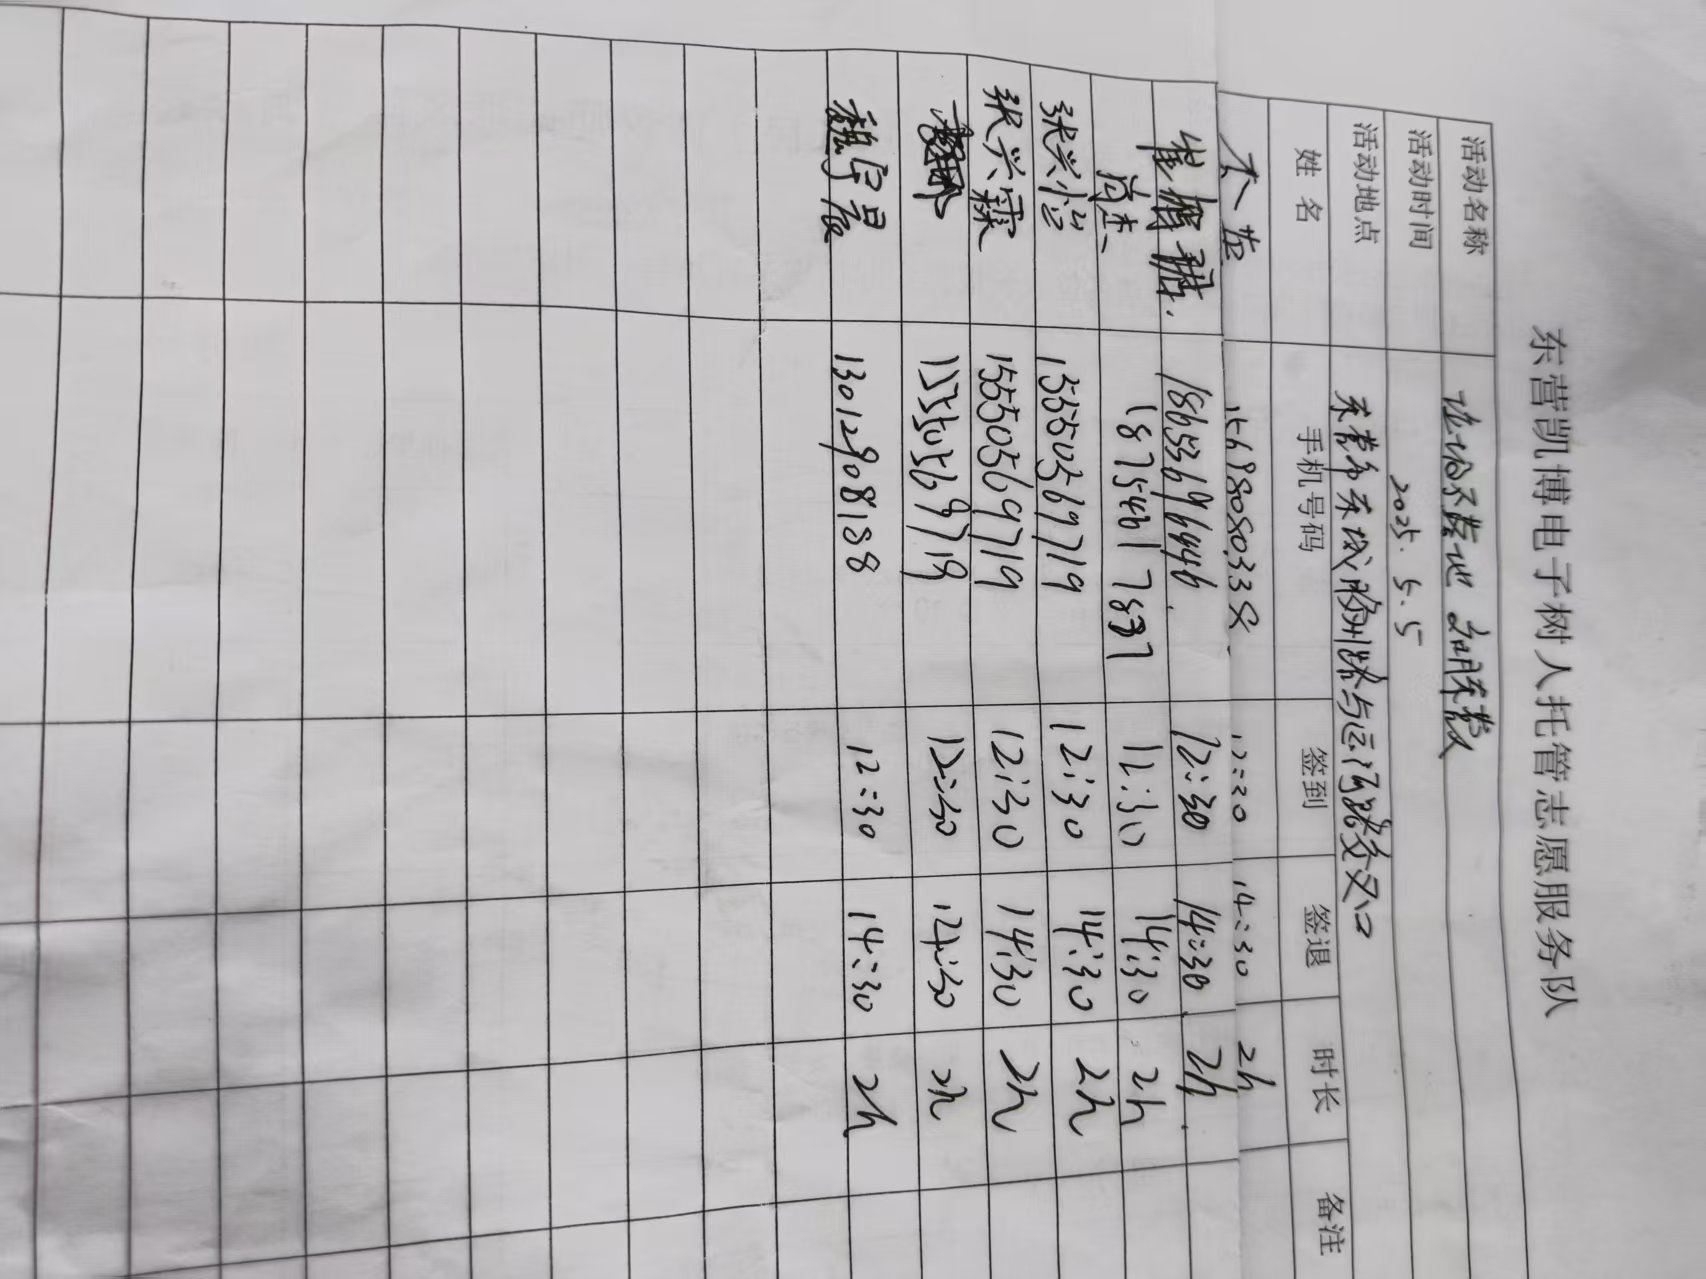 东营凯博电子树人托管志愿服务队
活动名称 垃圾不落地 文明东营
活动时间 2025.5.5
活动地点 东营市东城胶州路与运河路交叉口
姓名 手机号码 签到 签退 时长 备注
12:30 14:30 2h
18653696446. 12:30 14:30 2h.
尚杰 18754617837 12:30 14:30 2h
张兴怡 15550569719 12:30 14:30 2h
张兴霖 15550569719 12:30 14:30 2h
12:30 14:30 2h
魏学晨 13012908188 12:30 14:30 2h